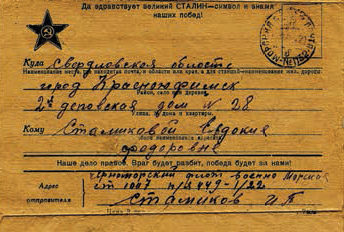 Да здравствует великий СТАЛИН—символ и знамя
наших побед!
Куда Свердловская область
Наименование места, где находится почта, и области или края, а для станций—наименование жел. дороги
город Красноуфимск
Район, село или деревня
2я деповская дом № 28
Улица, № дома и квартиры.
Кому Стамиковой Евдокие
фодоровне
Наше дело правое. Враг будет разбит, победа будет за нами!
Адрес
отправителя
Черноморский флот военно Морская
ст 1007 п/я 449-1/22
Стамиков И.П